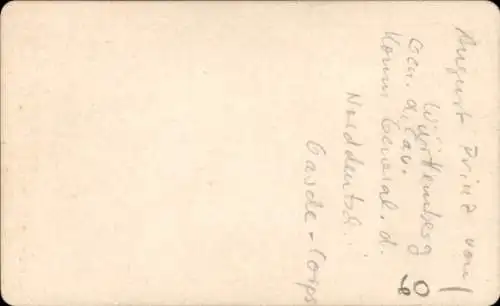 August Prinz von
Württemberg
Gen. d. Cav.
Komm General. d.
Norddeutsch.
Garde-Corps